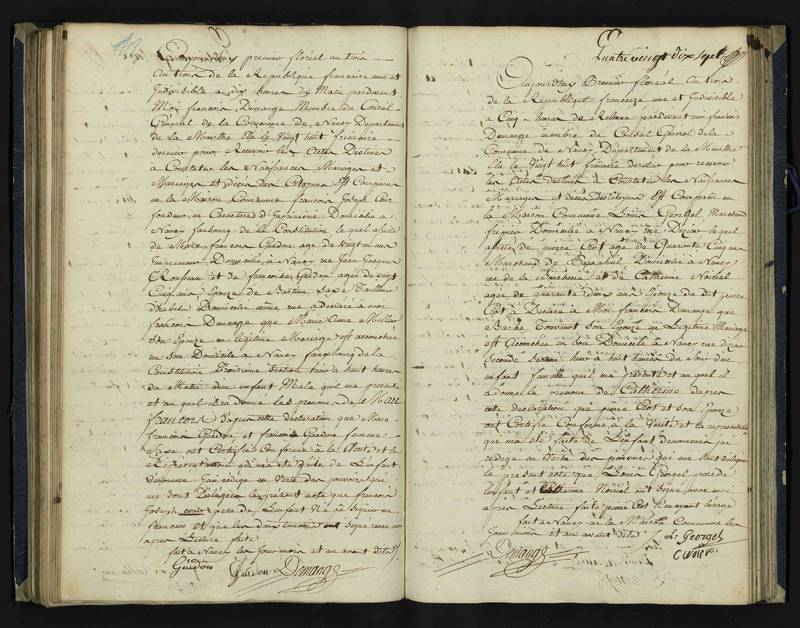 Aujourdhuy premier floréal an trois
an trois de la République francaise une et
Indivisible a dix heures du Matin pardevant
Moi francois Demange Membre du Conseil
Général de la Commune de Nancy Departement
de la Meurthe Elu le Vingt huit frimaire
dernier pour Recevoir les Actes Destinés
a Constater les Naissances Mariages et
Mariages et décès des Citoyens Est Comparus
en la Maison Commune francois Joseph
fondeur en Caractere d'Imprimerie Domicilié a
Nancy faubourg de la Constitution lequel assisté
de Marc francois Guedon agé de vingt ans
Imprimeur Domicilié a Nancy rue Jean Jacques
Rousseau et de francoise Guedon agée de vingt
Cinq ans Epouse de Bastien Tailleur
d'habits Domicilié même rue a declaré a moi
francois Demange que Marie Anne
Son Epouse en légitime Mariage est accouchée
en son Domicile a Nancy faubourg de la
Constitution Troisieme Section hier a huit heures
du Matin d'un enfant Male qu'il m'a presenté
et au quel il a donné les prenoms de Jean
francois D'après cette déclaration que Marc
francois Guedon et francoise Guedon femme
ont Certifié Conforme a la Verité et la
Représentation qui m'a été faite de L'enfant
denommé J'ai rédigé en Vertu des pouvoirs qui
me sont Délégués le présent acte que francois
Joseph pere de L'enfant N'a pu Signer
et que les deux temoins ont Signé avec moi
apres Lecture faite
fait a Nancy les Jour mois et an avant dits
Guedon
Guedon Demange
Quatre vingt dix sept
Aujourdhuy Premier floréal an trois
de la République francaise une et Indivisible
a Cinq heures de Relevée pardevant moi francois
Demange membre du Conseil Général de la
Commune de Nancy Département de la Meurthe
Elu le Vingt huit frimaire dernier pour recevoir
les Actes destinés a Constater les Naissances
Mariages et décès des Citoyens Est Comparu en
la Maison Commune Louis Georgel Marchand
fripier Domicilié a Nancy rue lequel
assisté de pierre agé de Quarante Cinq ans
Marchand de Domicilié a Nancy
rue de la et de Catherine
agée de quarante deux ans Epouse du dit pierre
a Déclaré a Moi francois Demange que
Barbe Thouvenot Son Epouse en Légitime Mariage
est accouchée en son Domicile a Nancy rue
Seconde Section hier a huit heures du Soir d'un
enfant femelle qu'il m'a présenté et au quel il
a donné le prenom de Catherine Dapres
cette déclaration que pierre et son Epouse
ont Certifié Conforme a la Verité et la représentation
qui m'a été faite de L'enfant denommé j'ai
rédigé en Vertu des pouvoirs qui me sont délégués
le présent acte que Louis Georgel pere de
L'enfant et Catherine ont Signé avec moi
apres Lecture faite pierre
fait a Nancy en la Maison Commune les
Jour mois et an avant dits
L. Georgel
Demange